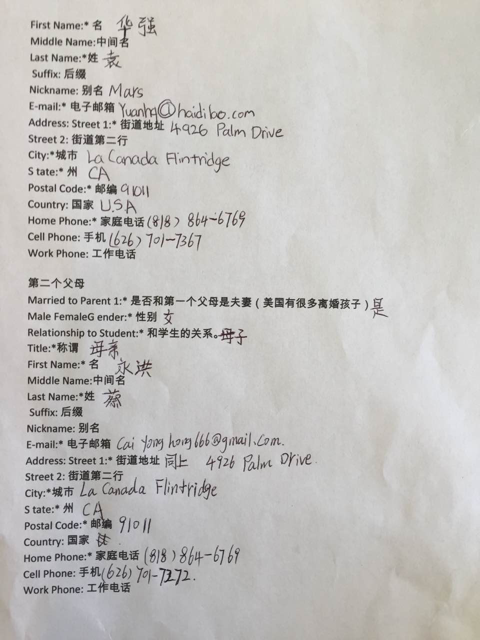 First Name:* 名 华强
Middle Name:中间名
Last Name:*姓 袁
Suffix: 后缀
Nickname: 别名 Mars
E-mail:* 电子邮箱 Yuanhq@haidibo.com
Address: Street 1:* 街道地址 4926 Palm Drive
Street 2: 街道第二行
City:*城市 La Canada Flintridge
S tate:* 州 CA
Postal Code:* 邮编 91011
Country: 国家 U.S.A
Home Phone:* 家庭电话 (818) 864-6769
Cell Phone: 手机 (626) 701-7367
Work Phone: 工作电话
第二个父母
Married to Parent 1:* 是否和第一个父母是夫妻（美国有很多离婚孩子）是
Male FemaleG ender:* 性别 女
Relationship to Student:* 和学生的关系。母子
Title:*称谓 母亲
First Name:* 名 永洪
Middle Name:中间名
Last Name:*姓
Suffix: 后缀
Nickname: 别名
E-mail:* 电子邮箱 Caiyonghong666@gmail.com.
Address: Street 1:* 街道地址 同上 4926 Palm Drive.
Street 2: 街道第二行
City:*城市 La Canada Flintridge
S tate:* 州 CA
Postal Code:* 邮编 91011
Country: 国家
Home Phone:* 家庭电话 (818) 864-6769
Cell Phone: 手机 (626) 701-7272.
Work Phone: 工作电话